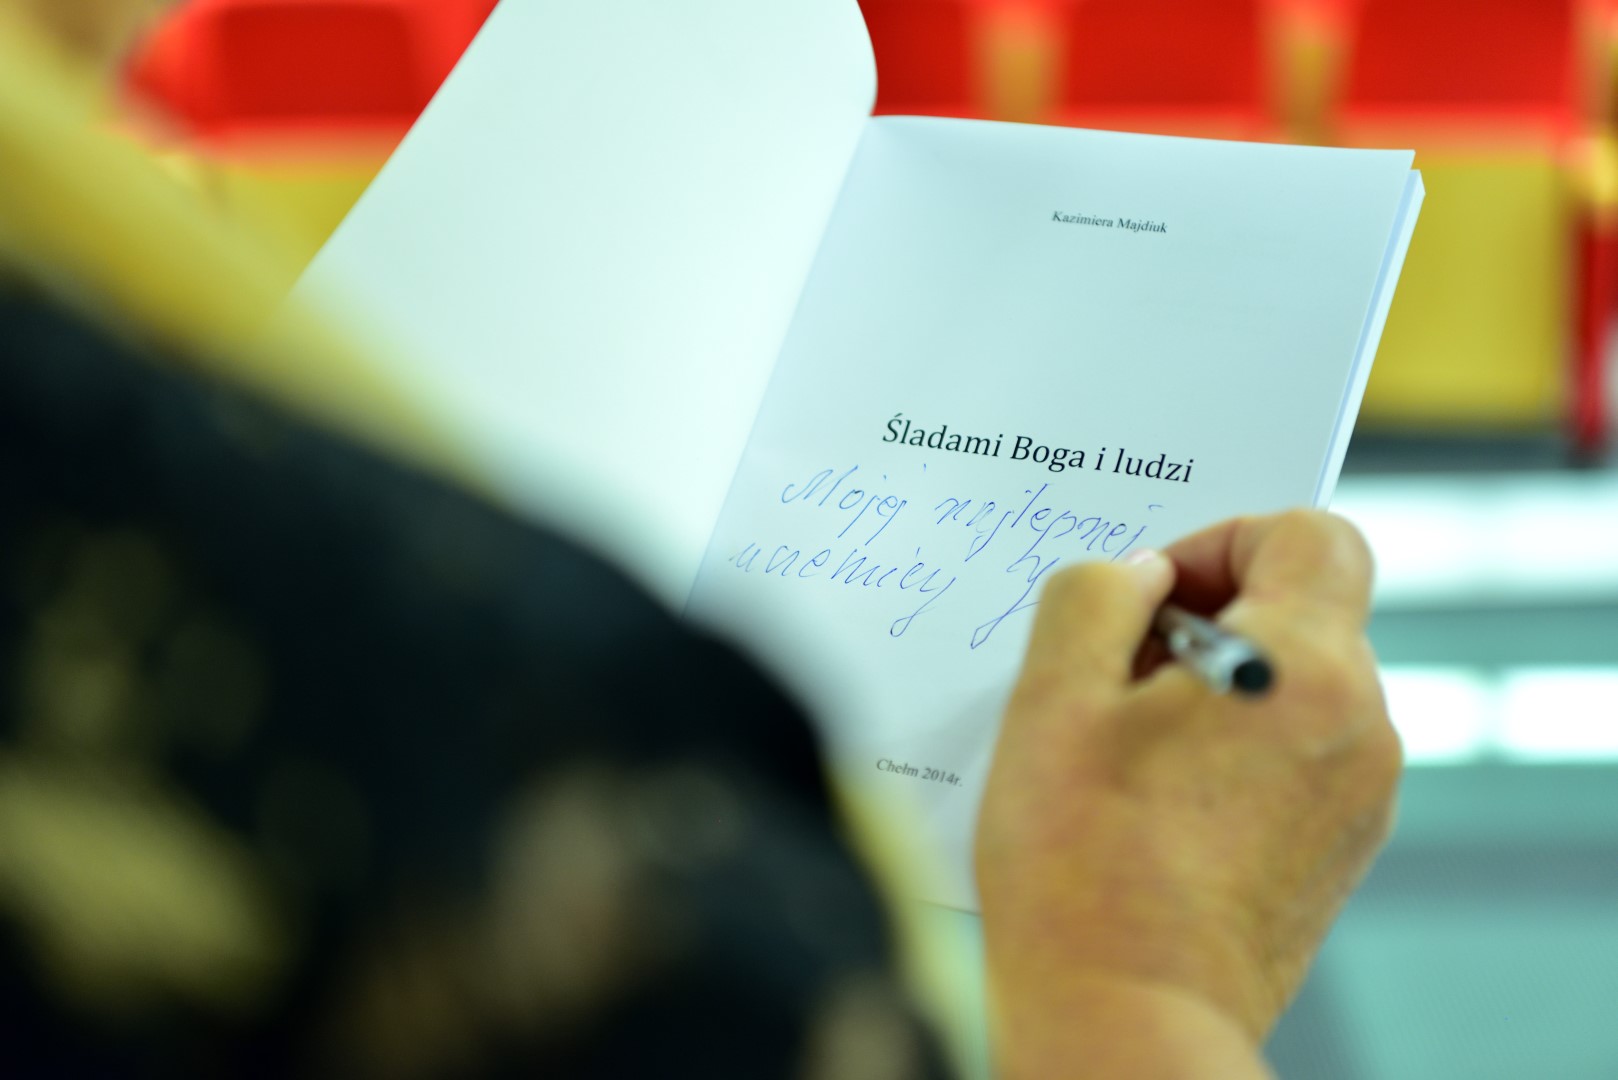 Kazimiera Majdiuk
Śladami Boga i ludzi
Mojej najlepszej
uczennicy
Chełm 2014r.